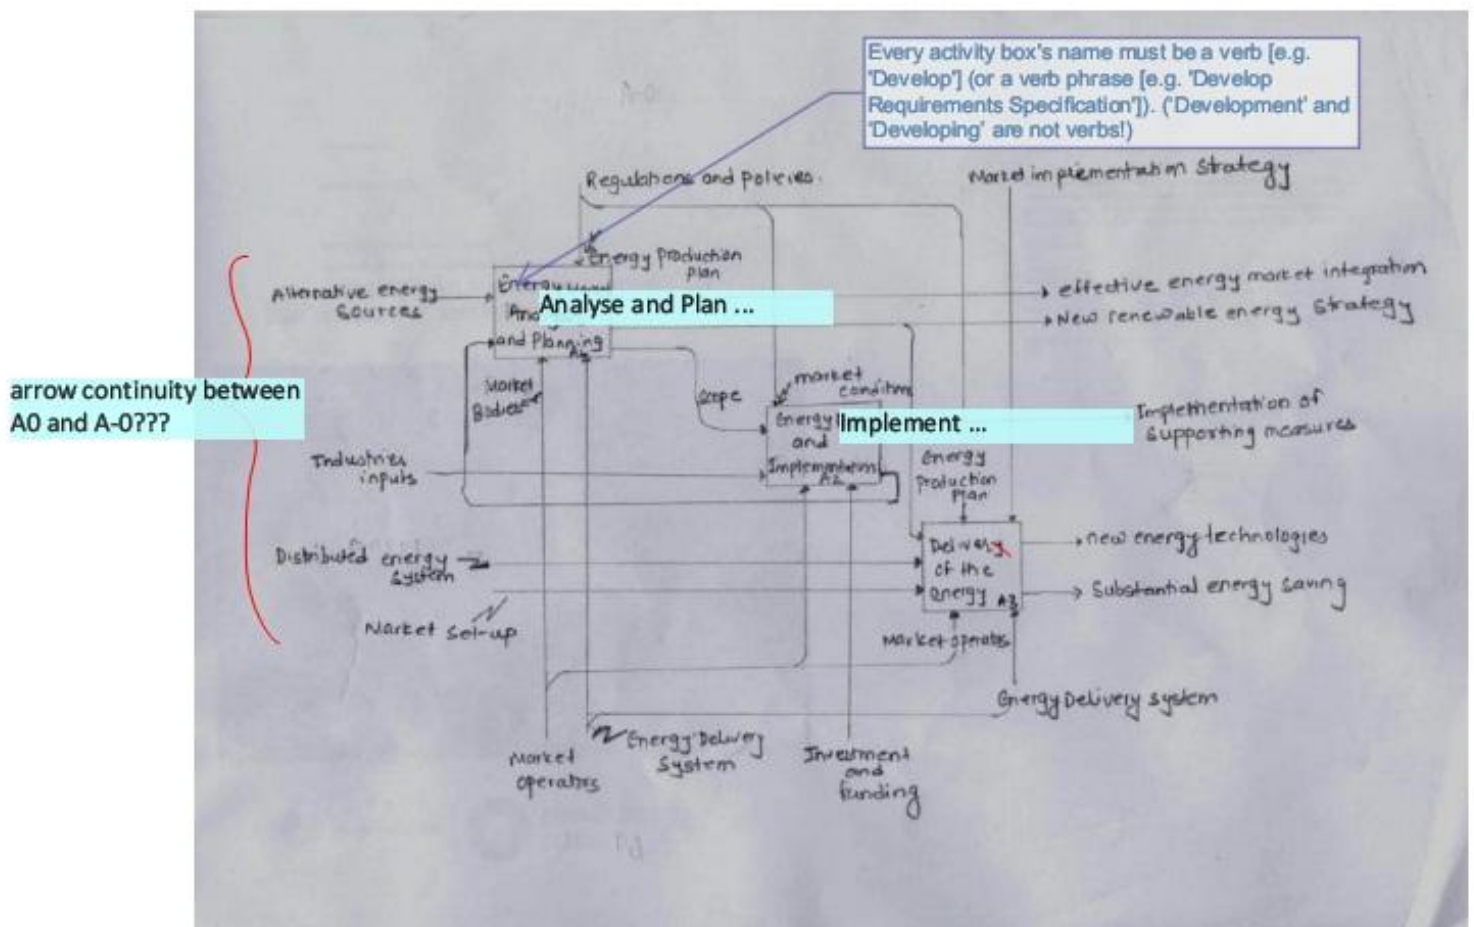 Every activity box's name must be a verb [e.g.
'Develop'] (or a verb phrase [e.g. 'Develop
Requirements Specification']). ('Development' and
'Developing' are not verbs!)
Regulations and policies.
Market implementation Strategy
Energy Production
Plan
Alternative energy
Sources
Energy
and Planning
A1
Analyse and Plan ...
effective energy market integration
New renewable energy Strategy
arrow continuity between
A0 and A-0???
Market
Bodies
Scope
market
condition
Energy
and
Implementation
A2
Implement ...
Implementation of
Supporting measures
Industries
inputs
Energy
Production
Plan
Distributed energy
System
Delivery
of the
energy A3
new energy technologies
Substantial energy saving
Market Set-up
Market operators
Energy Delivery system
Market
operators
Energy Delivery
System
Investment
and
funding